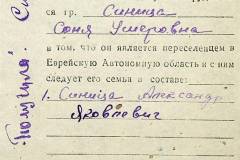 ся гр. Синица
Соня Умеровна
в том, что он является переселенцем в
Еврейскую Автономную область и с ним
следует его семья в составе:
1. Синица Александр
Яковлевич
Получила: